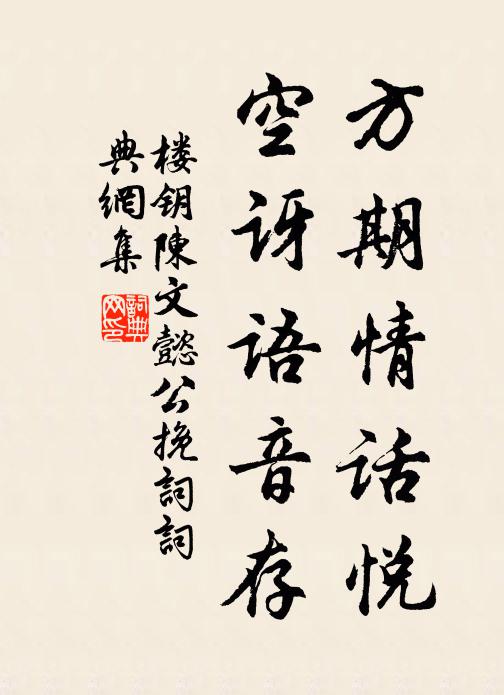 方期情话悦
空讶语音存
楼钥陳文懿公挽詞詞
典網集
詞典網印